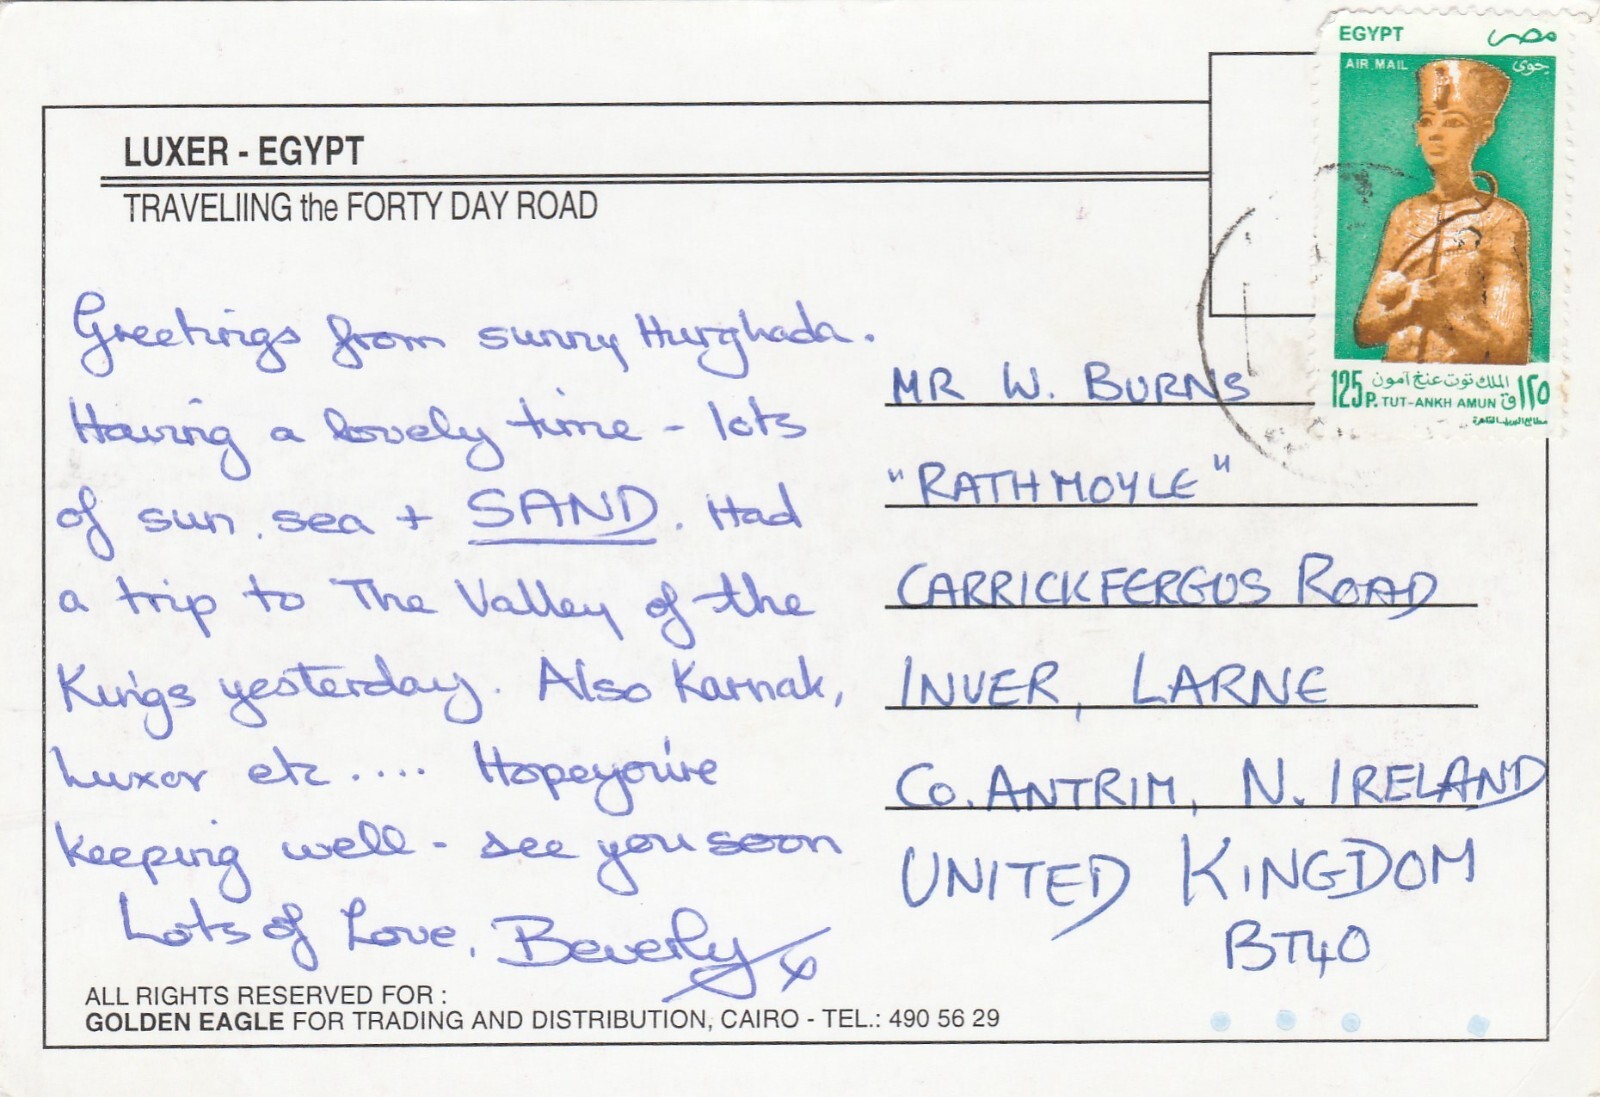 EGYPT مصر
AIR MAIL جوى
LUXER - EGYPT
TRAVELIING the FORTY DAY ROAD
125 P. الملك توت عنخ آمون ١٢٥ ق
TUT-ANKH AMUN
Greetings from sunny Hurghada.
Having a lovely time - lots
of sun, sea + SAND. Had
a trip to The Valley of the
Kings yesterday. Also Karnak,
Luxor etc .... Hope you're
keeping well - see you soon
Lots of Love, Beverly x
MR W. BURNS
"RATHMOYLE"
CARRICKFERGUS ROAD
INVER, LARNE
CO. ANTRIM, N. IRELAND
UNITED KINGDOM
BT40
ALL RIGHTS RESERVED FOR :
GOLDEN EAGLE FOR TRADING AND DISTRIBUTION, CAIRO - TEL.: 490 56 29